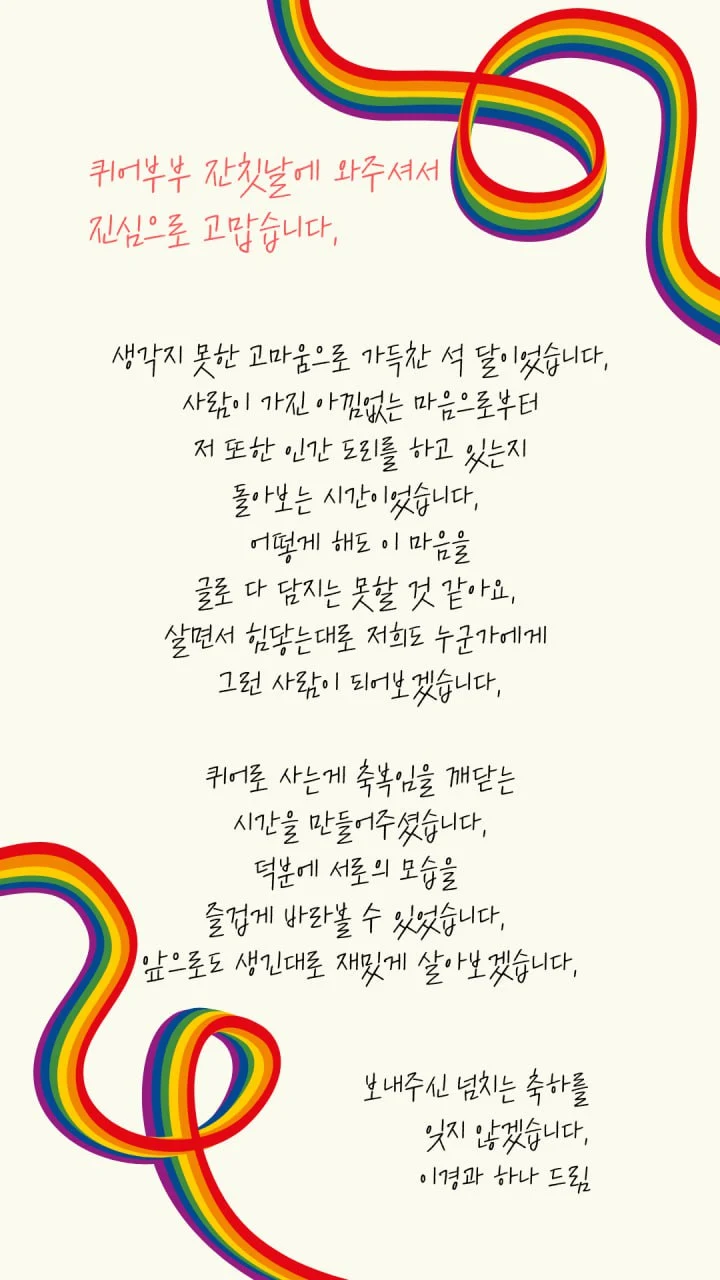 퀴어부부 잔칫날에 와주셔서
진심으로 고맙습니다,
생각지 못한 고마움으로 가득찬 석 달이었습니다,
사람이 가진 아낌없는 마음으로부터
저 또한 인간 도리를 하고 있는지
돌아보는 시간이었습니다,
어떻게 해도 이 마음을
글로 다 담지는 못할 것 같아요,
살면서 힘닿는대로 저희도 누군가에게
그런 사람이 되어보겠습니다,
퀴어로 사는게 축복임을 깨닫는
시간을 만들어주셨습니다,
덕분에 서로의 모습을
즐겁게 바라볼 수 있었습니다,
앞으로도 생긴대로 재밌게 살아보겠습니다,
보내주신 넘치는 축하를
잊지 않겠습니다,
이경과 하나 드림